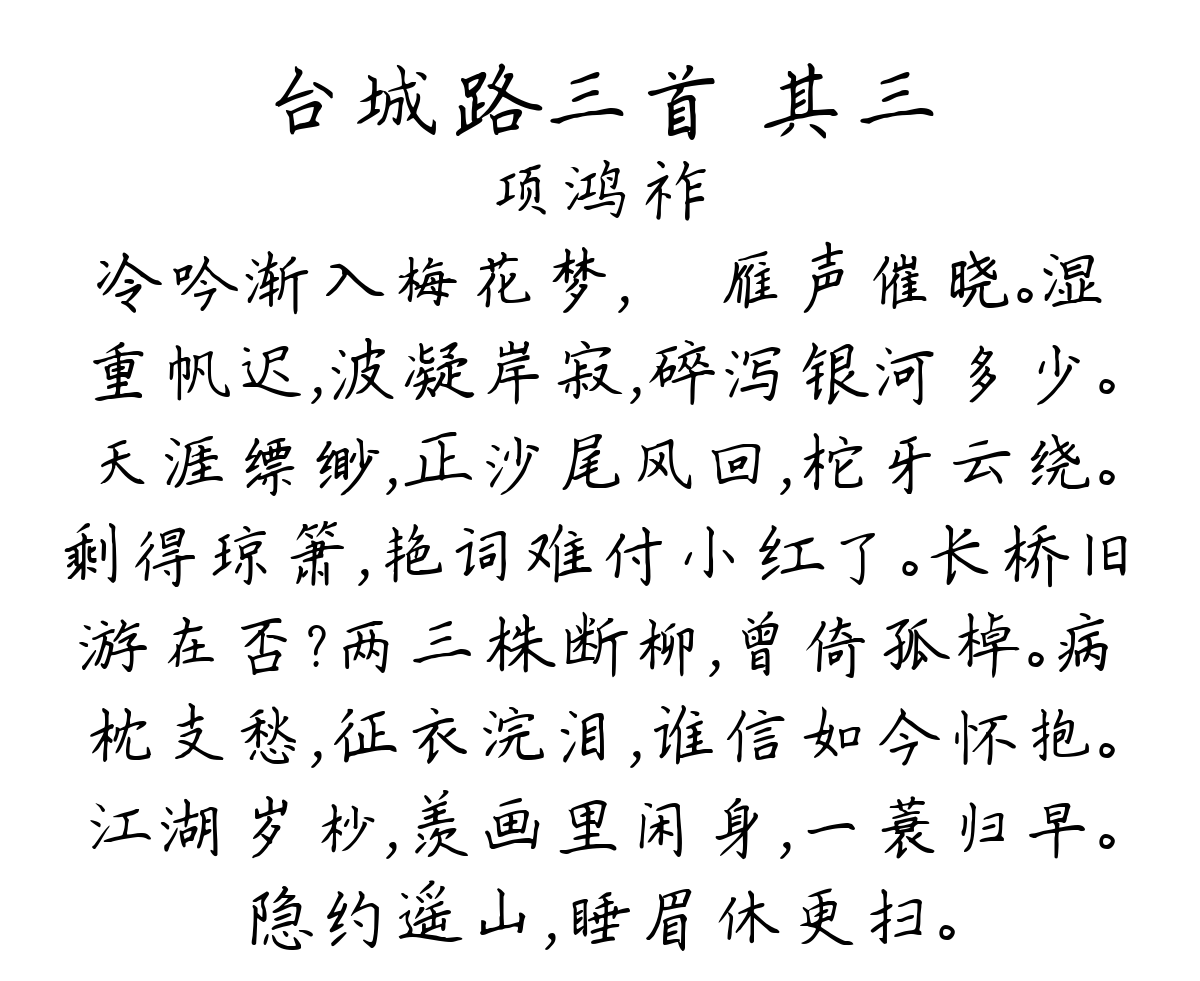 台城路三首 其三
项鸿祚
冷吟渐入梅花梦, 雁声催晓。湿
重帆迟,波凝岸寂,碎泻银河多少。
天涯缥缈,正沙尾风回,柁牙云绕。
剩得琼箫,艳词难付小红了。长桥旧
游在否?两三株断柳,曾倚孤棹。病
枕支愁,征衣浣泪,谁信如今怀抱。
江湖岁杪,羡画里闲身,一蓑归早。
隐约遥山,睡眉休更扫。